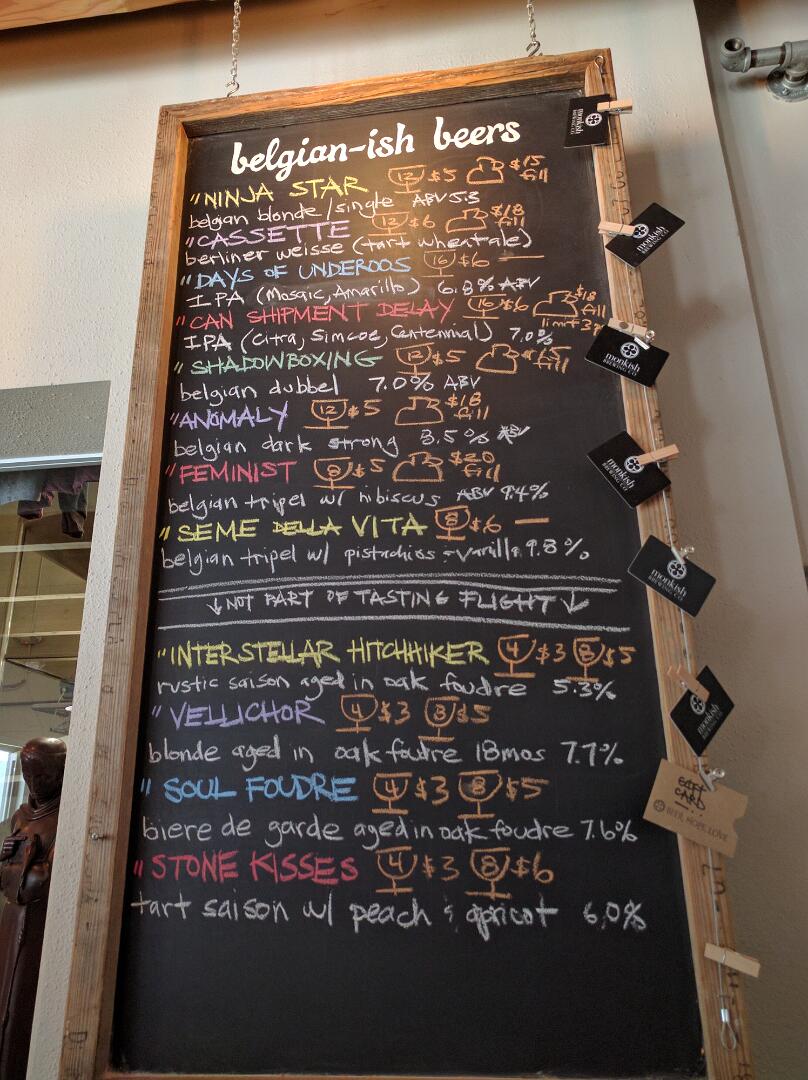 belgian-ish beers
"NINJA STAR 12 $5 $15 fill
belgian blonde/single ABV 5.3
"CASSETTE 12 $6 $18 fill
berliner weisse (tart wheat ale)
"DAYS OF UNDEROOS 16 $6 —
IPA (Mosaic, Amarillo) 6.8% ABV
"CAN SHIPMENT DELAY 16 $6 $18 fill
limit 3
IPA (Citra, Simcoe, Centennial) 7.0%
"SHADOWBOXING $5 $15 fill
belgian dubbel 7.0% ABV
"ANOMALY 12 $5 $18 fill
belgian dark strong 8.5% ABV
"FEMINIST 8 $5 $20 fill
belgian tripel w/ hibiscus ABV 9.4%
"SEME DELLA VITA 8 $6 —
belgian tripel w/ pistachios + vanilla 9.8%
↓ NOT PART OF TASTING FLIGHT ↓
"INTERSTELLAR HITCHHIKER 4 $3 8 $5
rustic saison aged in oak foudre 5.3%
"VELLICHOR 4 $3 8 $5
blonde aged in oak foudre 18mos 7.7%
"SOUL FOUDRE 4 $3 8 $5
biere de garde aged in oak foudre 7.6%
"STONE KISSES 4 $3 8 $6
tart saison w/ peach & apricot 6.0%
monkish
BREWING CO
monkish
BREWING CO
monkish
BREWING CO
monkish
BREWING CO
monkish
BREWING CO
monkish
BREWING CO
GIFT
CARD
BEER, HOPE, LOVE